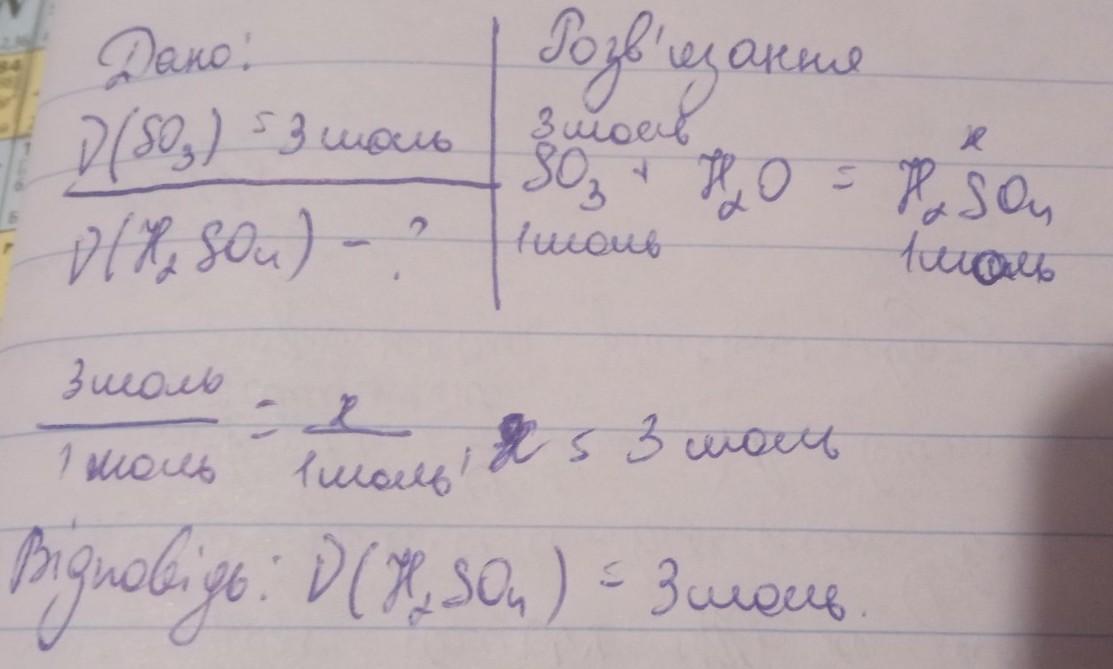 Дано:
ν(SO₃) = 3 моль
ν(H₂SO₄) - ?
Розв'язання
3 моль x
SO₃ + H₂O = H₂SO₄
1 моль 1 моль
3 моль / 1 моль = x / 1 моль, x = 3 моль
Відповідь: ν(H₂SO₄) = 3 моль.